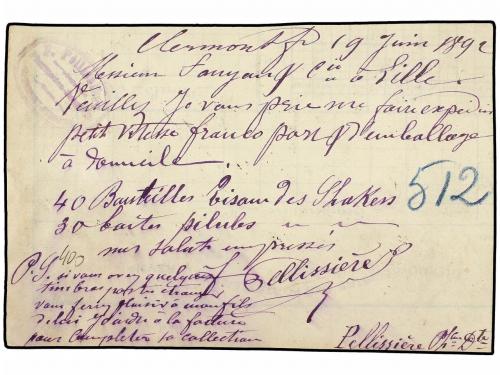 Clermont Fd 19 Juin 1892
Messieurs Fanyau & Cie à Lille
Veuillez Je vous prie me faire expédier
petite vitesse franco port & emballage
à domicile.
40 Bouteilles tisane des Shakers
30 boîtes pilules " "
mes salutations empressées
Pellissière
512
P.S. si vous avez quelques
timbres poste étrangers
vous ferez plaisir à mon fils
de les joindre à la facture
pour compléter sa collection
Pellissière Phien Dte